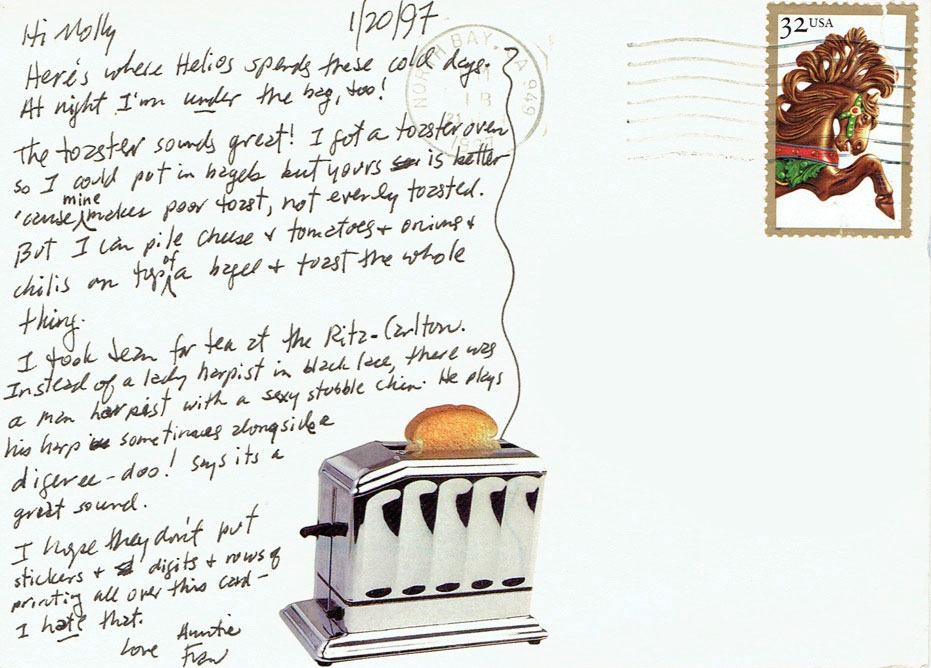 1/20/97
Hi Molly
Here's where Helios spends these cold days.
At night I'm under the bag, too!
The toaster sounds great! I got a toaster oven
so I could put in bagels but yours is better
'cause mine makes poor toast, not evenly toasted.
But I can pile cheese + tomatoes + onions +
chilis on top of a bagel + toast the whole
thing.
I took Jean for tea at the Ritz-Carlton.
Instead of a lady harpist in black lace, there was
a man harpist with a sexy stubble chin. He plays
his harp sometimes alongside a
digeree-doo! says its a
great sound.
I hope they don't put
stickers + digits + rows of
printing all over this card-
I hate that.
Love Auntie
Fran
NORTH BAY, CA 949
21
1997
32 USA